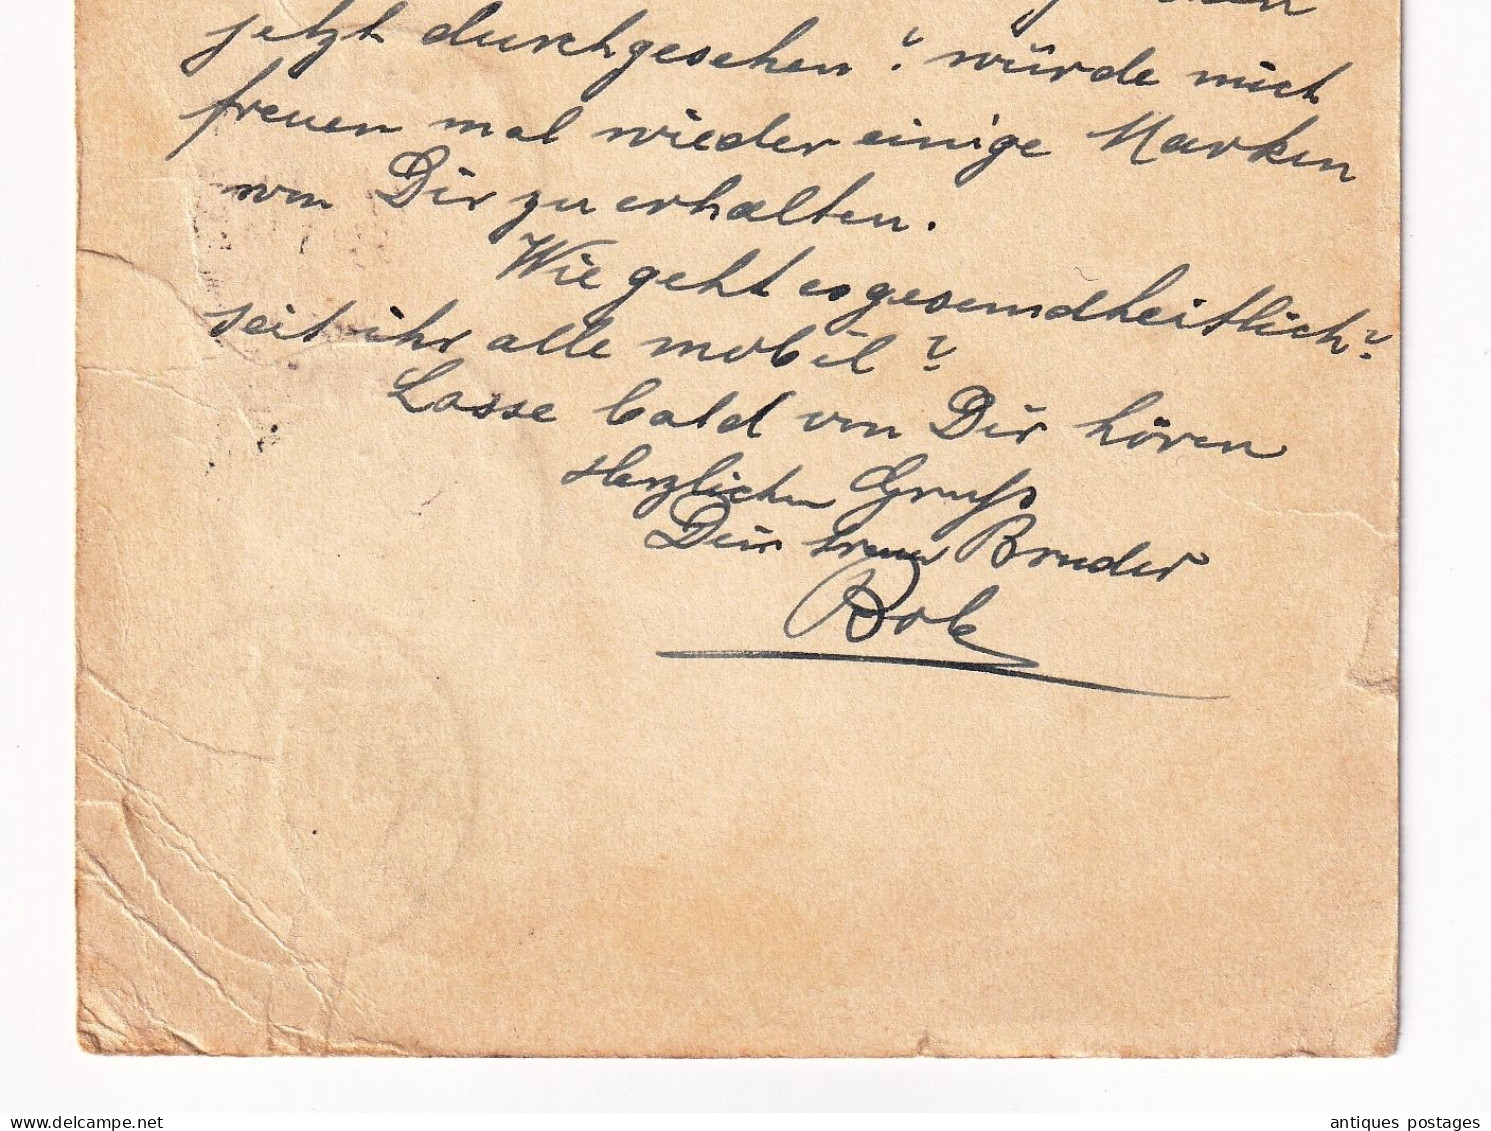 jetzt durchgesehen? würde mich
freuen mal wieder einige Marken
von Dir zu erhalten.
Wie geht es gesundheitlich?
seit ihr alle mobil?
Lasse bald von Dir hören
Herzlichen Gruß
Dein treuer Bruder
antiques postages